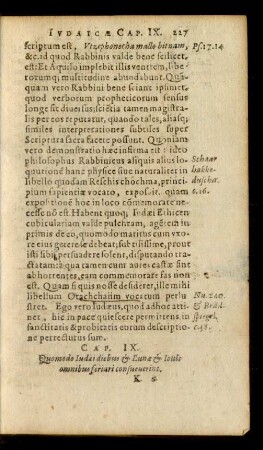 IVDAICÆ CAP. IX. 227
scriptum est, Vtzephonecha malle bitnam,
&c. id quod Rabbinis valde bene scilicet,
est: Et Aquilo implebit illis ventrem, libe-
rorumq; multitudine abundabunt. Quã-
quam vero Rabbini bene sciant ipsimet,
quod verborum propheticorum sensus
longe sit diuersus; scietia tamen magistra-
lis per eos reputatur, quando tales, aliasq;
similes interpretationes subtiles super
Scriptura sacra facere possint. Quoniam
vero demonstratio hæc insima est: ideo
philosophus Rabbiniens aliquis alius lo-
quutionẽ hanc physice siue naturaliter in
libello quodam Reschis chochma, princi-
pium sapientiæ vocato, exposuit. quam
expositionẽ hoc in loco commorate ne-
cesse nõ est. Habent quoq; Iudæi Ethicen
cubiculariam valde pulchram, agẽtem in-
primis de eo, quomodo maritus cum vxo-
re eius gerere se debeat; subtilissime, prout
isti sibi persuadere solent, disputando tra-
ctatam: a qua tamen cum aures castæ sint
abhorrentes, eam commemorare fas non
est. Quam si quis nosse desiderer, ille mihi
libellum Orachchaiim vocatum perlu
stret. Ego vero Iudæus, quod ad hoc atti-
net, hic in pace quiescere permittens, in
sanctitatis & probitatis eorum descriptio-
ne perrecturus sum.
CAP. IX.
Quomodo Iudæi diebus & Lunæ & Iouis
omnibus feriari consueuerint.
K 6
Ps. 17. 14
Schaar
hakke-
duschah
c. 16.
Nu. 240
& Brād-
spiegel,
c. 38.